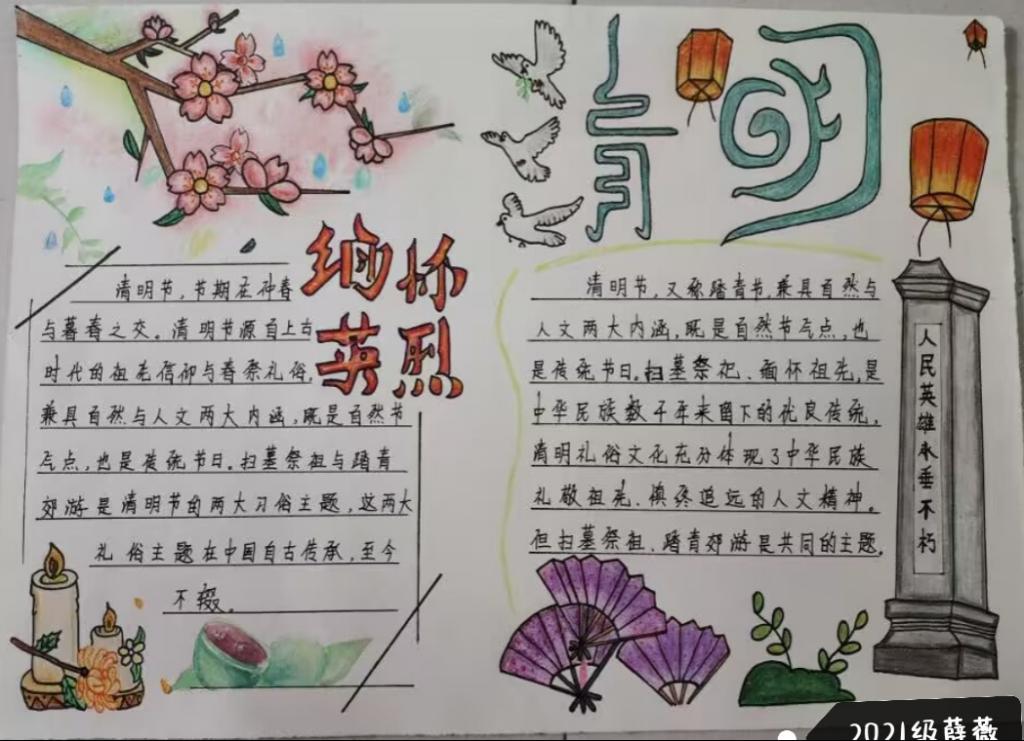 缅怀
英烈
清明节,节期在仲春
与暮春之交。清明节源自上古
时代的祖先信仰与春祭礼俗,
兼具自然与人文两大内涵,既是自然节
气点,也是传统节日。扫墓祭祖与踏青
郊游是清明节的两大习俗主题,这两大
礼俗主题在中国自古传承,至今
不辍。
清明
清明节,又称踏青节,兼具自然与
人文两大内涵,既是自然节气点,也
是传统节日。扫墓祭祀、缅怀祖先,是
中华民族数千年来留下的优良传统,
清明礼俗文化充分体现了中华民族
礼敬祖先、慎终追远的人文精神。
但扫墓祭祖、踏青郊游是共同的主题。
人民英雄永垂不朽
2021级薛薇